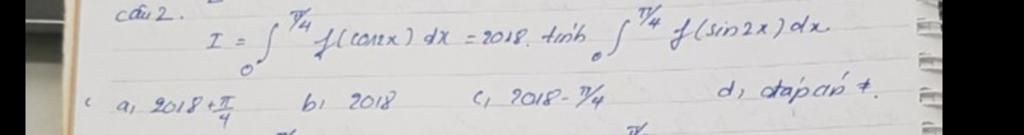 câu 2.
I = ∫₀^{π/4} f(cos2x) dx = 2018. tính ∫₀^{π/4} f(sin2x) dx
a, 2018 + π/4 b, 2018 c, 2018 - π/4 d, đáp án ≠.